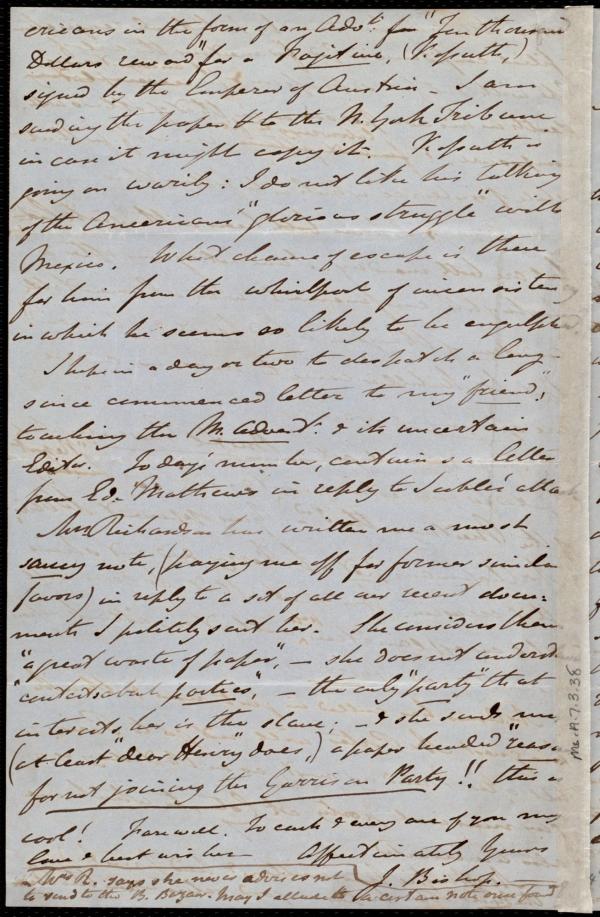 ericans in the form of an Advt. for "Ten thousand
Dollars reward" for a Fugitive, (Kossuth,)
signed by the Emperor of Austria - I am
sending the paper to the N. York Tribune
in case it might copy it. Kossuth is
going on warily: I do not like his talking
of the Americans' "glorious struggle" with
Mexico. What chance of escape is there
for him from the whirlpool of inconsistency
in which he seems so likely to be engulphed.
I hope in a day or two to despatch a long
since commenced letter to my "friend",
touching the M. Advert. & its uncertain
Editor. Today's number, contains a letter
from Ed. Mathews in reply to Scoble's attack
Mrs Richardson has written me a most
saucy note, (paying me off for former similar
favors) in reply to a set of all our recent docu-
ments I politely sent her. She considers them
"a great waste of paper", - she does not underst
"contests about parties", - the only "party" that
interests her is the slave; - & she sends me
(at least "dear Henry" does,) a paper headed "reasons
for not joining the Garrison Party"!! this is
cool! Farewell. To each & every one of you my
love & best wishes Affectionately Yours
J. Bishop.
Mrs R. says she never advises not
to send to the B. Bazaar. May I allude to a certain note once
Ms. A. 7. 3. 38